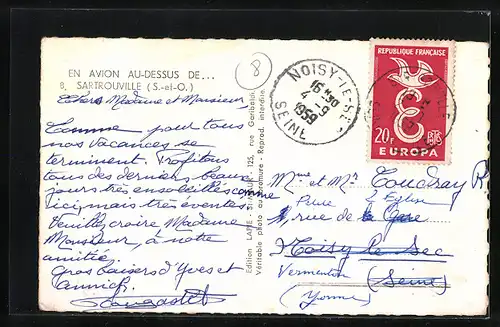 EN AVION AU-DESSUS DE...
8, SARTROUVILLE (S.-et-O.)
8
Chers Madame et Monsieur
Comme pour tous
nos vacances se
terminent. Profitons
tous des derniers beaux
jours très ensoleillés comme
ici, mais très éventés
Veuillez croire Madame
Monsieur, à notre
amitié.
Gros baisers d'Yves et
Annick.
Edition LAPIE
Véritable photo au bromure - Reprod. interdite.
NOISY-LE-SEC
16H30
4-9
1959
SEINE
REPUBLIQUE FRANÇAISE
20F
EUROPA
Mme et Mr
rue de la Gare
Noisy le Sec
Vermenton (Seine)
(Yonne)